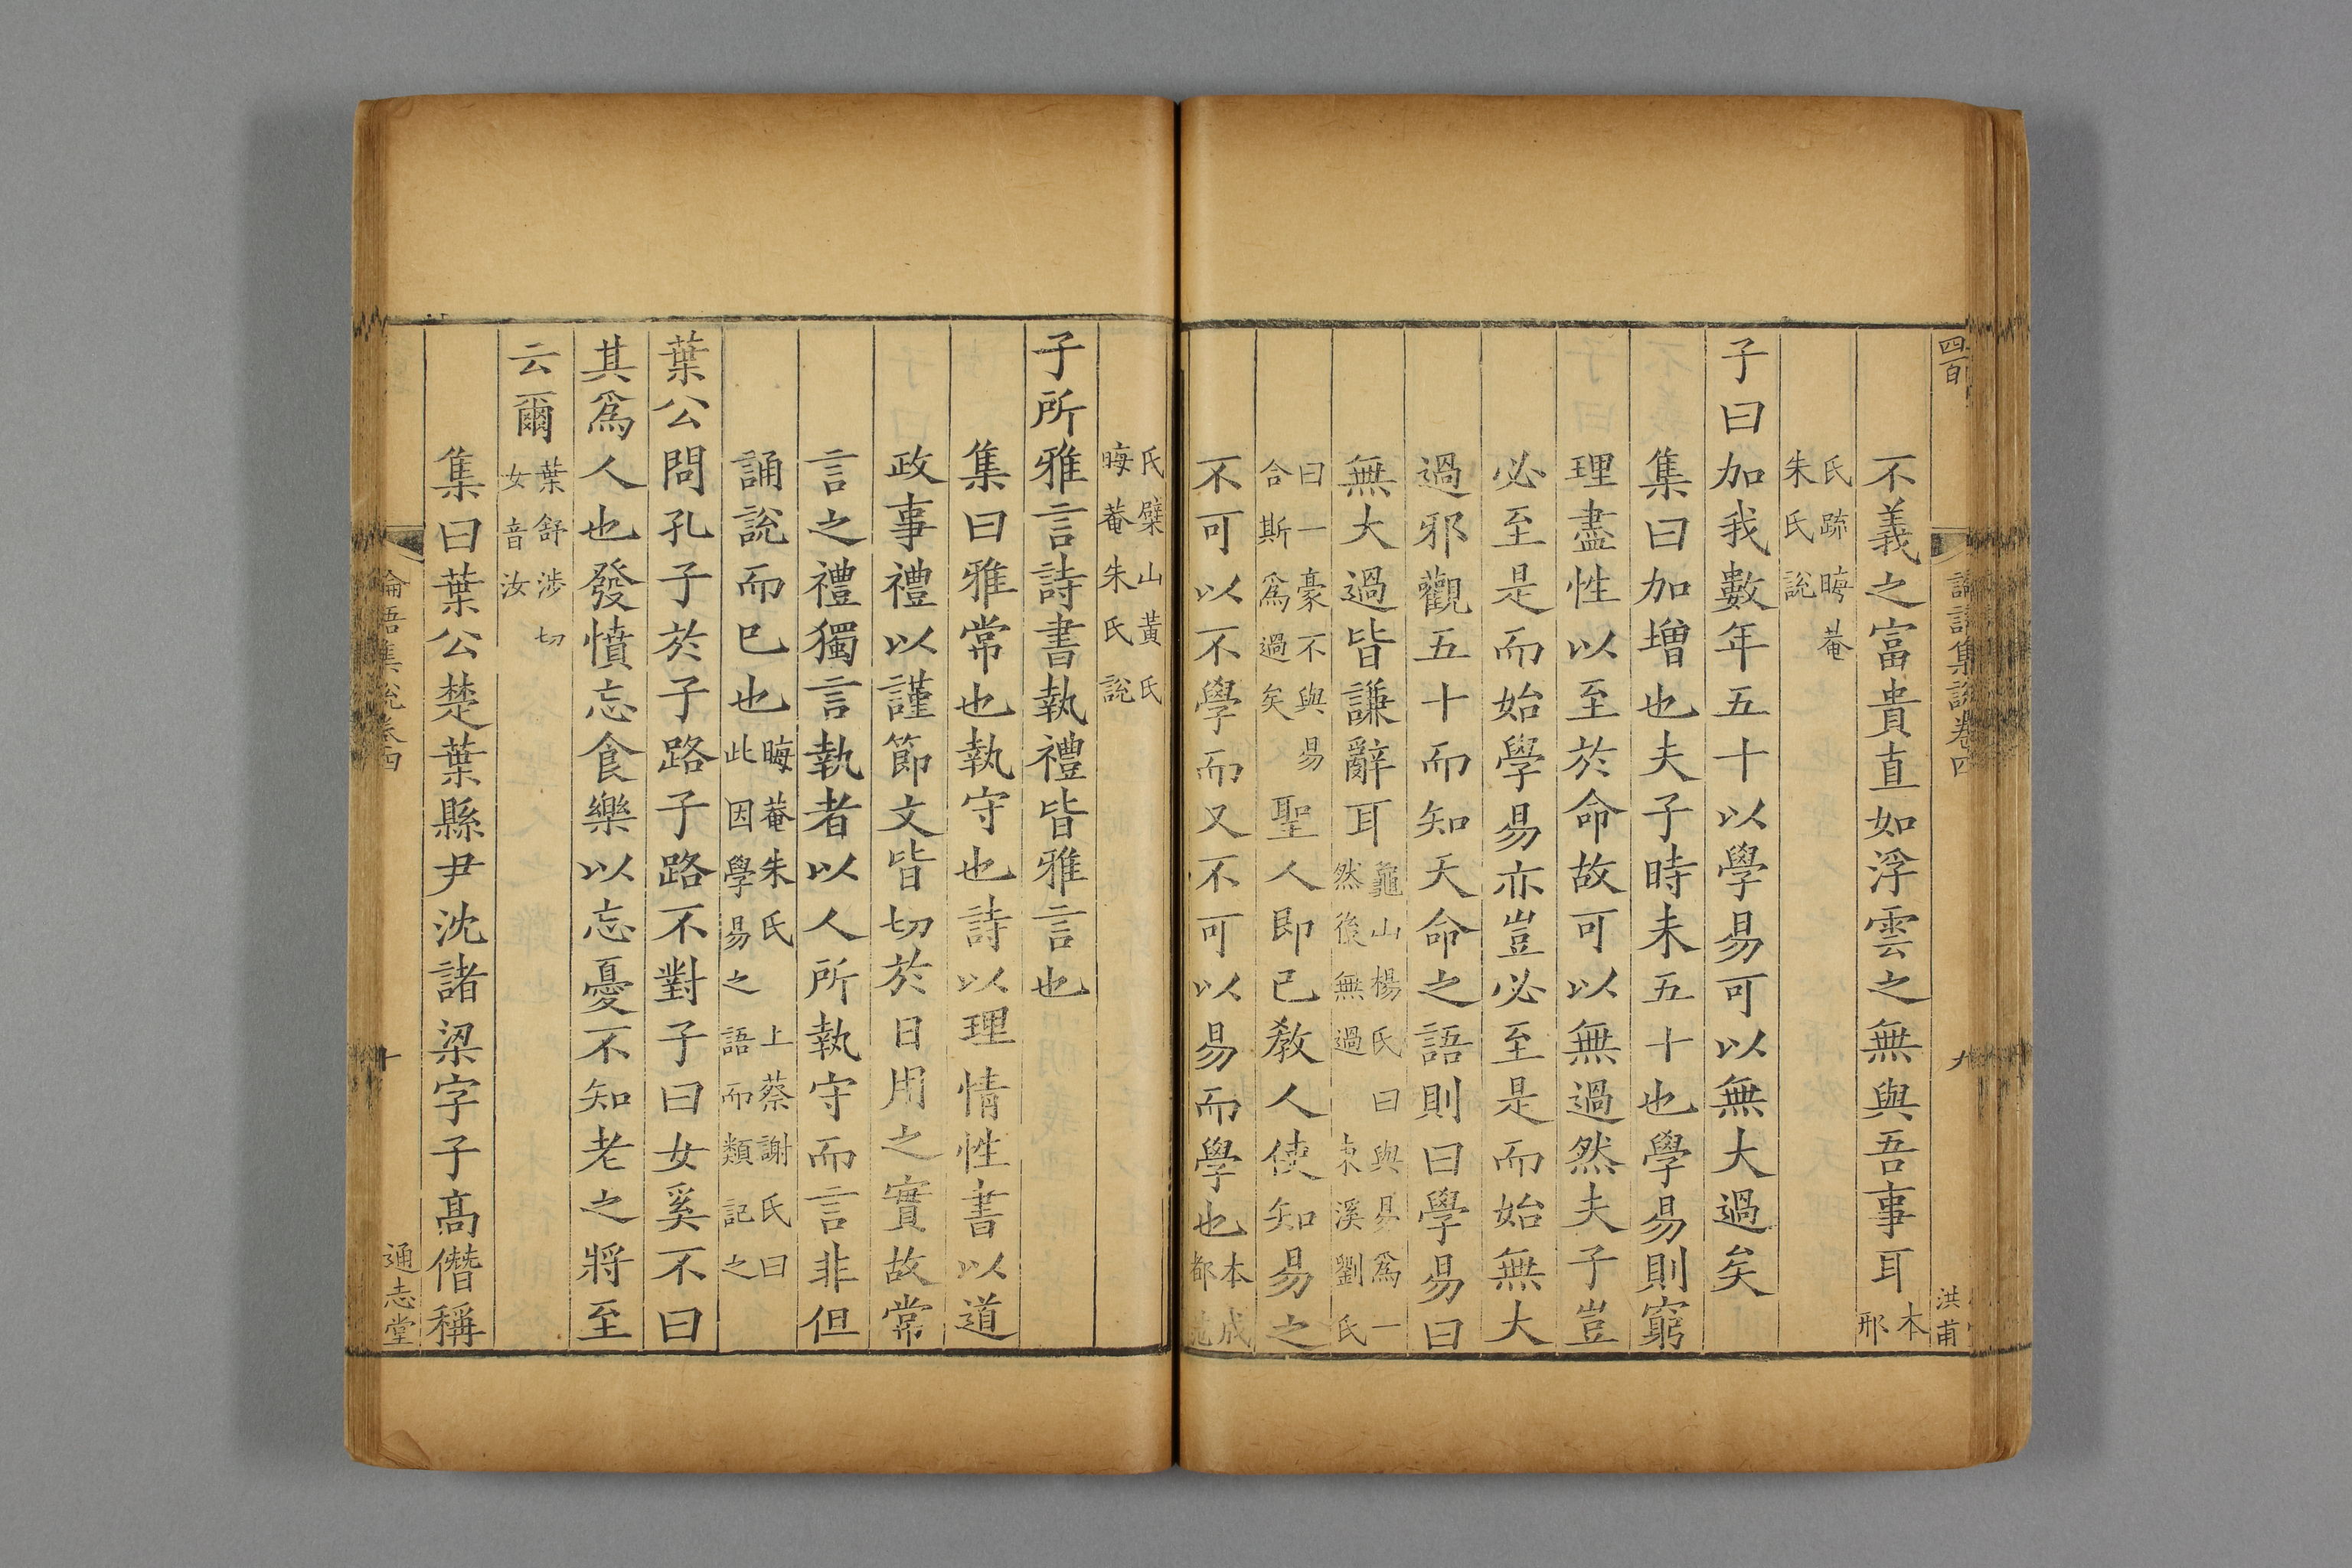 四百
論語集説卷四
九
洪甫
不義之富貴直如浮雲之無與吾事耳本邢
氏䟽晦菴朱氏説
子曰加我數年五十以學易可以無大過矣
集曰加増也夫子時未五十也學易則窮
理盡性以至於命故可以無過然夫子豈
必至是而始學易亦豈必至是而始無大
過邪觀五十而知天命之語則曰學易曰
無大過皆謙辭耳龜山楊氏曰與易爲一然後無過東溪劉氏
曰一豪不與易合斯爲過矣聖人即已教人使知易之
不可以不學而又不可以易而學也本成都范
氏檗山黃氏晦菴朱氏説
子所雅言詩書執禮皆雅言也
集曰雅常也執守也詩以理情性書以道
政事禮以謹節文皆切於日用之實故常
言之禮獨言執者以人所執守而言非但
誦説而已也晦菴朱氏上蔡謝氏曰此因學易之語而類記之
葉公問孔子於子路子路不對子曰女奚不曰
其爲人也發憤忘食樂以忘憂不知老之將至
云爾葉舒涉切女音汝
集曰葉公楚葉縣尹沈諸梁字子高僭稱
論語集説卷四
十
通志堂